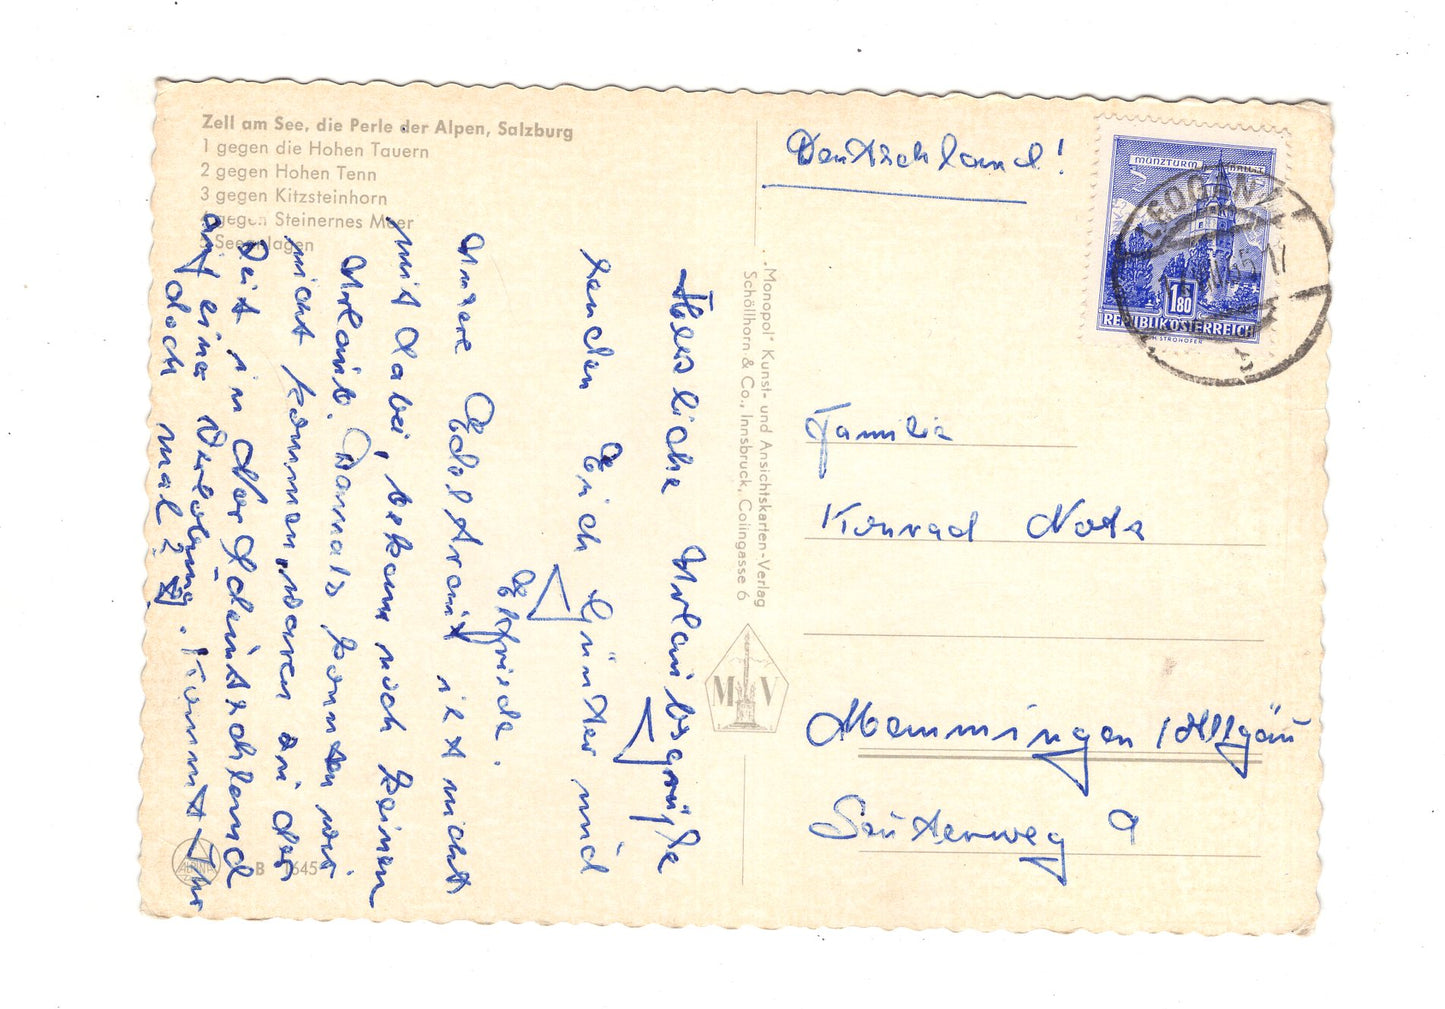 Zell am See, die Perle der Alpen, Salzburg
1 gegen die Hohen Tauern
2 gegen Hohen Tenn
3 gegen Kitzsteinhorn
4 gegen Steinernes Meer
5 Seeanlagen
Herzliche Urlaubsgrüße
senden Euch Günter und
Elfriede.
Unsere Edeltraut ist nicht
mit dabei, bekam noch keinen
Urlaub. Damals konnten wir
nicht kommen, waren zu der
Zeit in Norddeutschland
auf einer Verlobung. Kommt Ihr
doch mal z.
B 1645
„Monopol" Kunst- und Ansichtskarten-Verlag
Schöllhorn & Co., Innsbruck, Colingasse 6
M V
Deutschland!
MÜNZTURM
1.80
REPUBLIK ÖSTERREICH
LEOGANG
Familie
Konrad Notz
Memmingen / Allgäu
Seuterweg 9